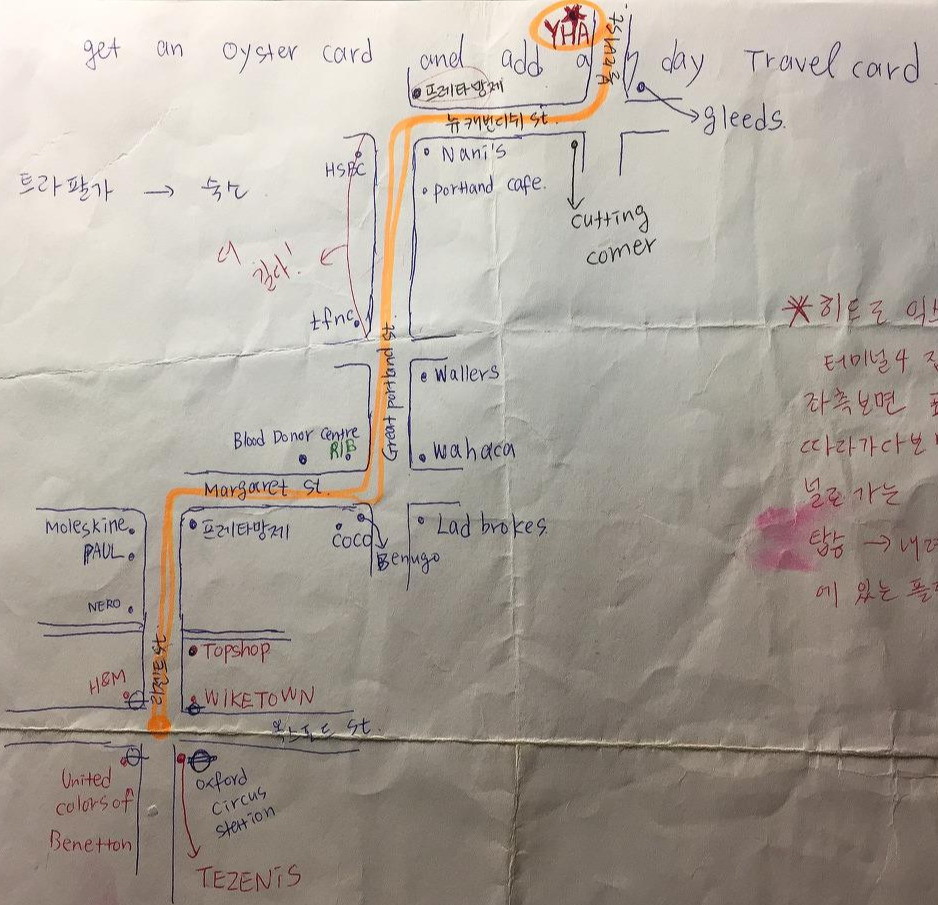 YHA
get an oyster card and add a day Travel card
프레타망제
gleeds.
뉴캐번디쉬 st.
Nani's
HSBC
portland cafe.
트라팔가 → 숙소
cutting
corner
더
길다!
tfnc
Great portland st.
*히드로 익스
터미널 4
Wallers
좌측보면
Blood Donor Centre
RIB
wahaca
따라가다보
Margaret st.
널로 가는
Moleskine
프레타망제
coco
Lad brokes.
PAUL
Benugo
탑승 → 내려
NERO
에 있는 플랫
Topshop
H&M
WIKETOWN
옥스퍼드 st.
United
colors of
Benetton
oxford
circus
station
TEZENIS